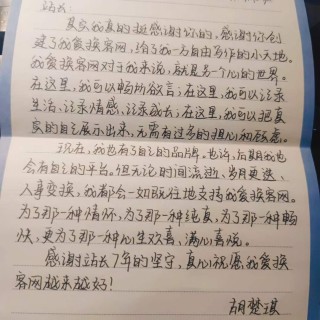 站长:
其实我真的挺感谢你的,感谢你创
建了我爱换客网,给了我一方自由写作的小天地。
我爱换客网对于我来说,就是另一个心的世界。
在这里,我可以畅所欲言;在这里,我可以记录
生活、记录情感、记录成长;在这里,我可以把真
实的自己展示出来,无需有过多的担心和顾虑。
现在,我也有了自己的品牌。也许,后期我也
会有自己的平台。但无论时间流逝、岁月更迭、
人事变换,我都会一如既往地支持我爱换客网。
为了那一种情怀,为了那一种纯真,为了那一种畅
快,更为了那一种心生欢喜、满心喜悦。
感谢站长7年的坚守,真心祝愿我爱换
客网越来越好!
胡梦琪